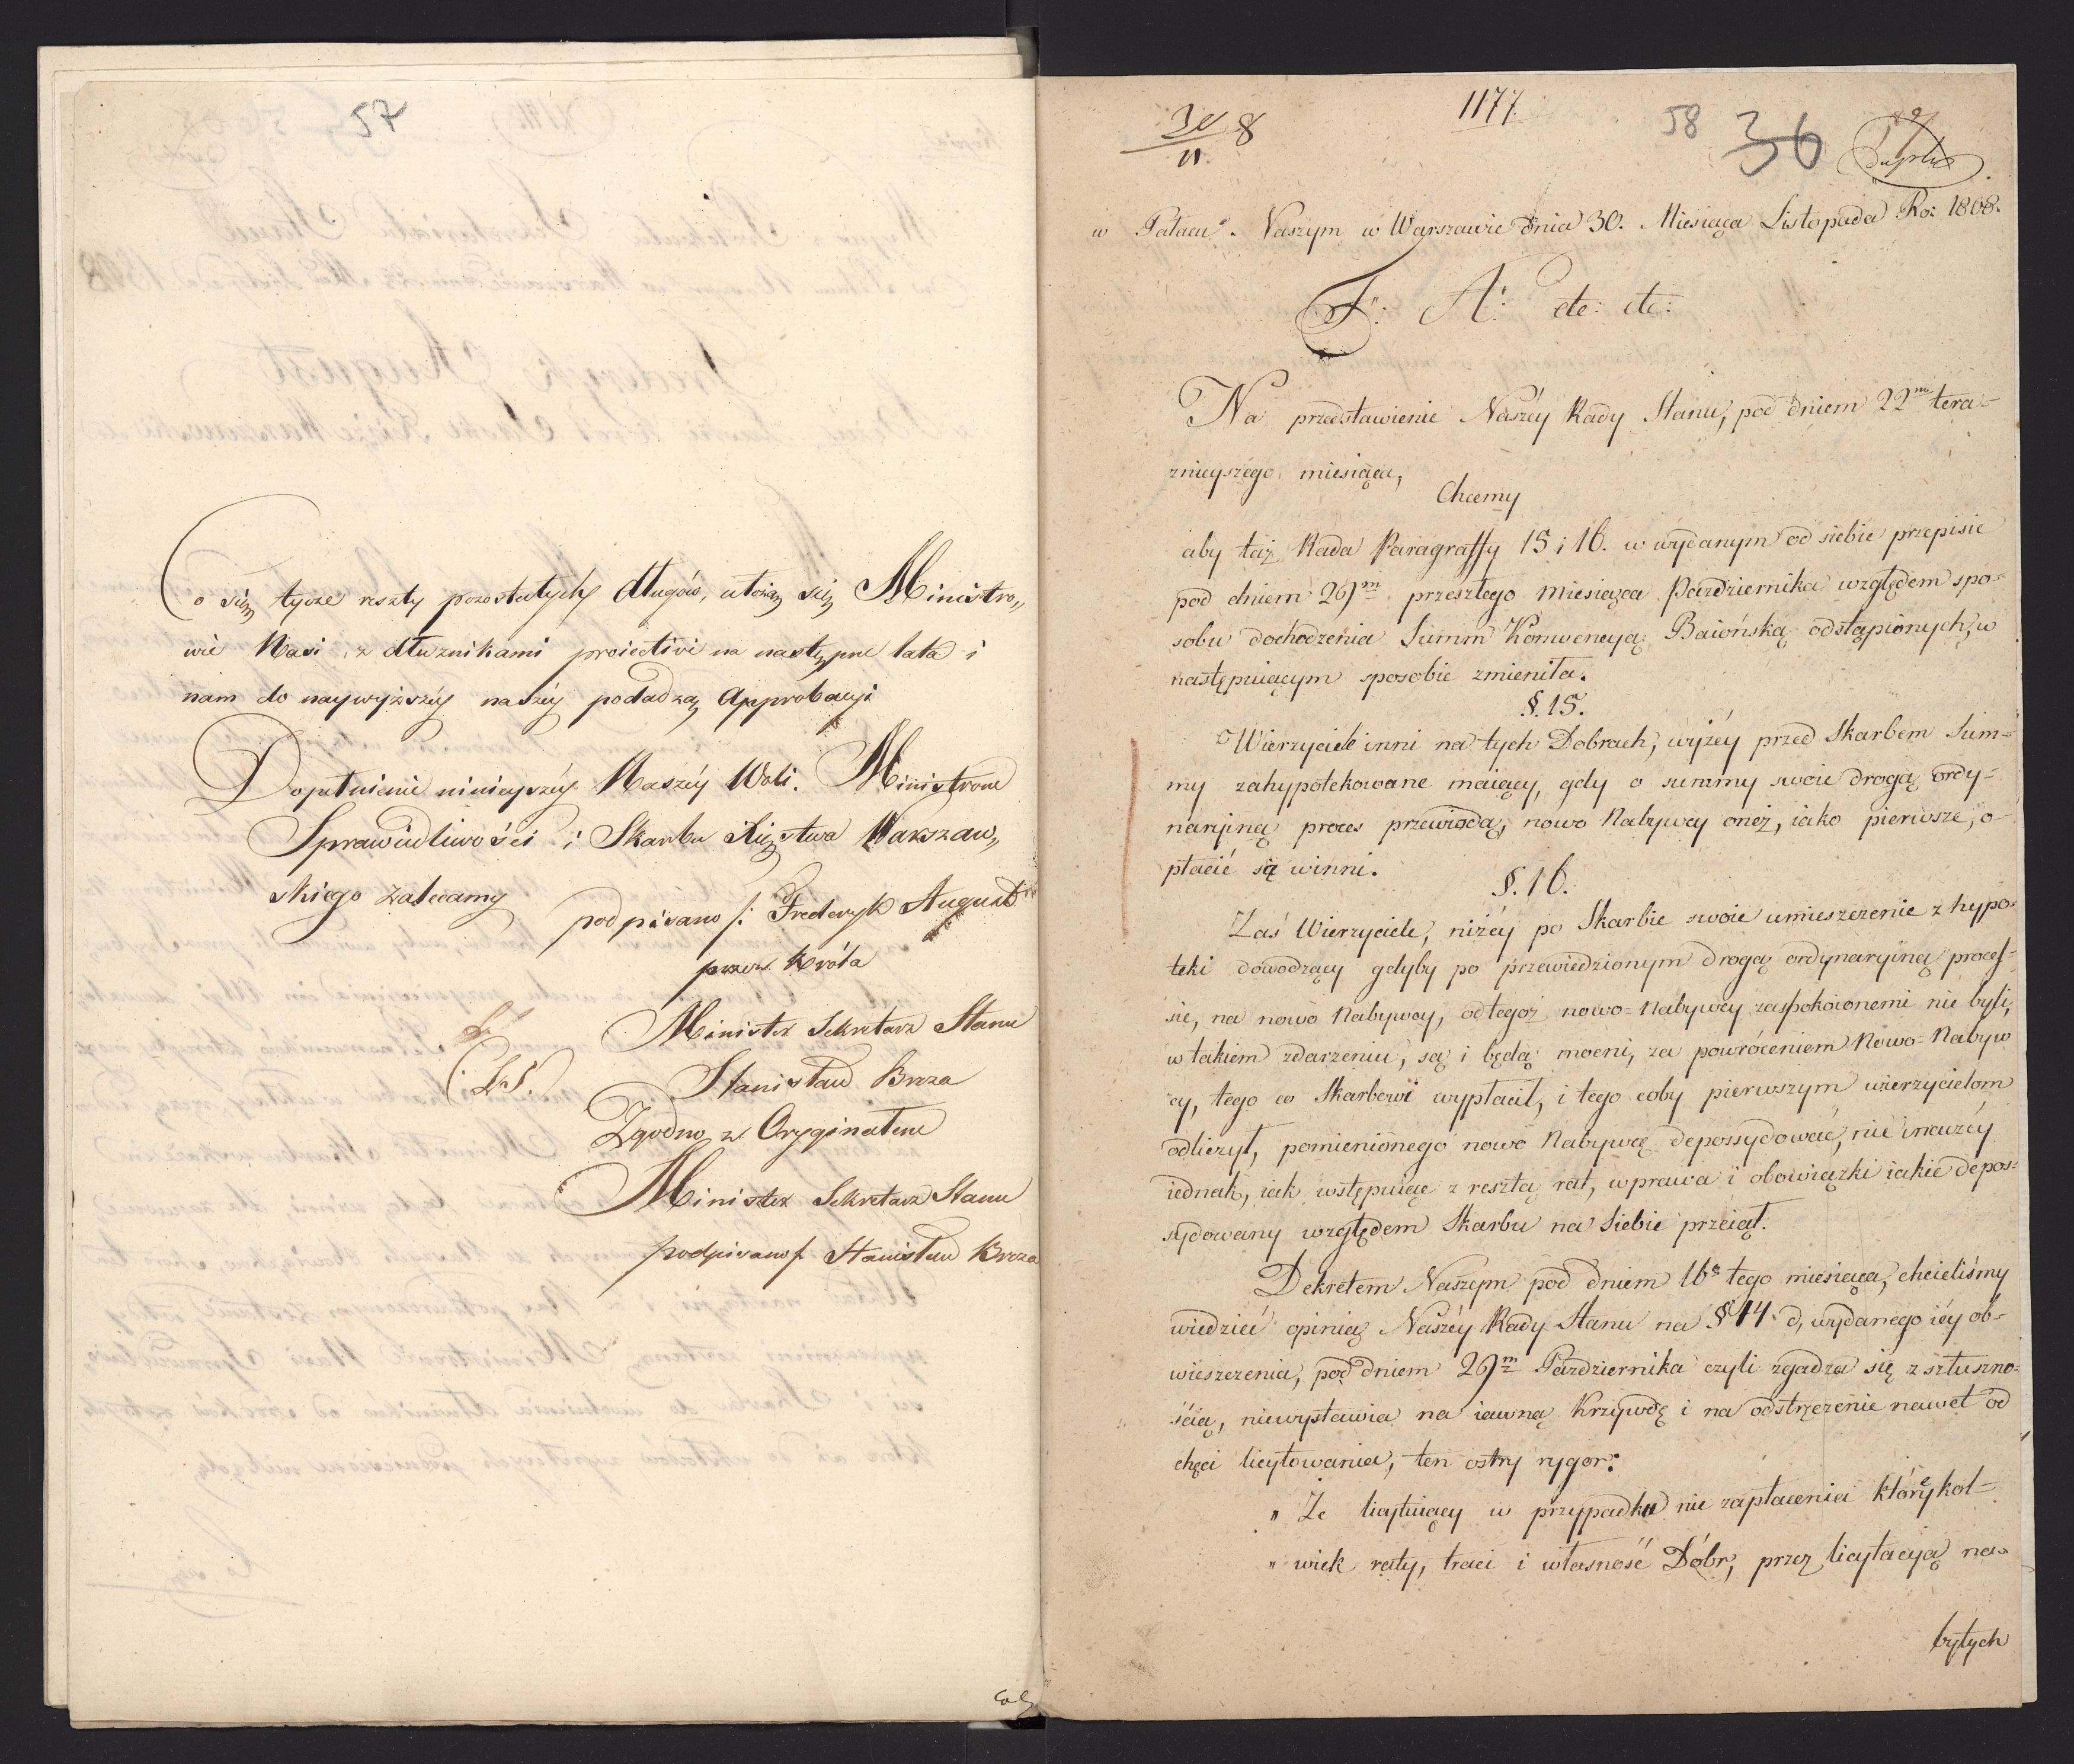 57
Co się tycze reszty pozostałych długów, ułożą się Ministro„
wie Nasi z dłużnikami proiective na następne lata i
nam do naywyższéy naszéy podadzą Approbacyi
Dopełnienie ninieyszéy Naszéy Woli. Ministrom
Sprawiedliwości i Skarbu Xięstwa Warszaw„
skiego zalecamy
podpisano /: Frederyk August
przez Króla
Minister Sekretarz Stanu
(L.S.)
Stanisław Breza
Zgodno z Oryginałem
Minister Sekretarz Stanu
podpisano /: Stanisław Breza
30/11 8
1177.
58
36
Duplic
w Pałacu Naszym w Warszawie dnia 30. Miesiąca Listopada Ro: 1808.
F: A: etc: etc:
Na przedstawienie Naszéy Rady Stanu, pod dniem 22m tera-
znieyszego miesiąca,
Chcemy
aby taż Rada Paragraffy 15 i 16. w wydanym od siebie przepisie
pod dniem 29m przeszłego miesiąca Października względem spo-
sobu dochodzenia Summ Konwencyą Baiońską odstąpionych, w
następuiącym sposobie zmieniła.
§. 15.
Wierzyciele inni na tych Dobrach, wyżéy przed Skarbem Sum-
my zahypotekowane maiący, gdy o summy swoie drogą ordy-
naryiną proces przewiodą, nowo Nabywcy oneż, iako pierwsze, o-
płacić są winni.
§. 16.
Zaś Wierzyciele, niżéy po Skarbie swoie umieszczenie z hypo-
teki dowodzący gdyby po przewiedzionym drogą ordynaryiną proces-
sie, na nowo Nabywcy, od tegoż nowo-Nabywcy zaspokoionemi nie byli,
w takiem zdarzeniu, są i będą mocni, za powróceniem Nowo-Nabyw
cy, tego co Skarbowi wypłacił, i tego coby pierwszym wierzycielom
odliczył, pomienionego nowo Nabywcę depossydować, nie inaczéy
iednak, iak wstępuiąc z resztą rat, w prawa i obowiązki iakie depos-
sydowany względem Skarbu na siebie przeiął.
Dekretem Naszym pod dniem 16ᵗ tego miesiąca, chcieliśmy
wiedzieć opinią Naszéy Rady Stanu na § 14. d, wydanego iéy ob-
wieszczenia, pod dniem 29m Października czyli zgadza się z słuszno-
ścią, niewystawia na iawną krzywdę i na odstręczenie nawet od
chęci licytowania, ten ostry rygor:
„ Że licytuiący w przypadku nie zapłacenia któréykol-
„ wiek raty, traci i własność Dóbr, przez licytacyą na-
bytych